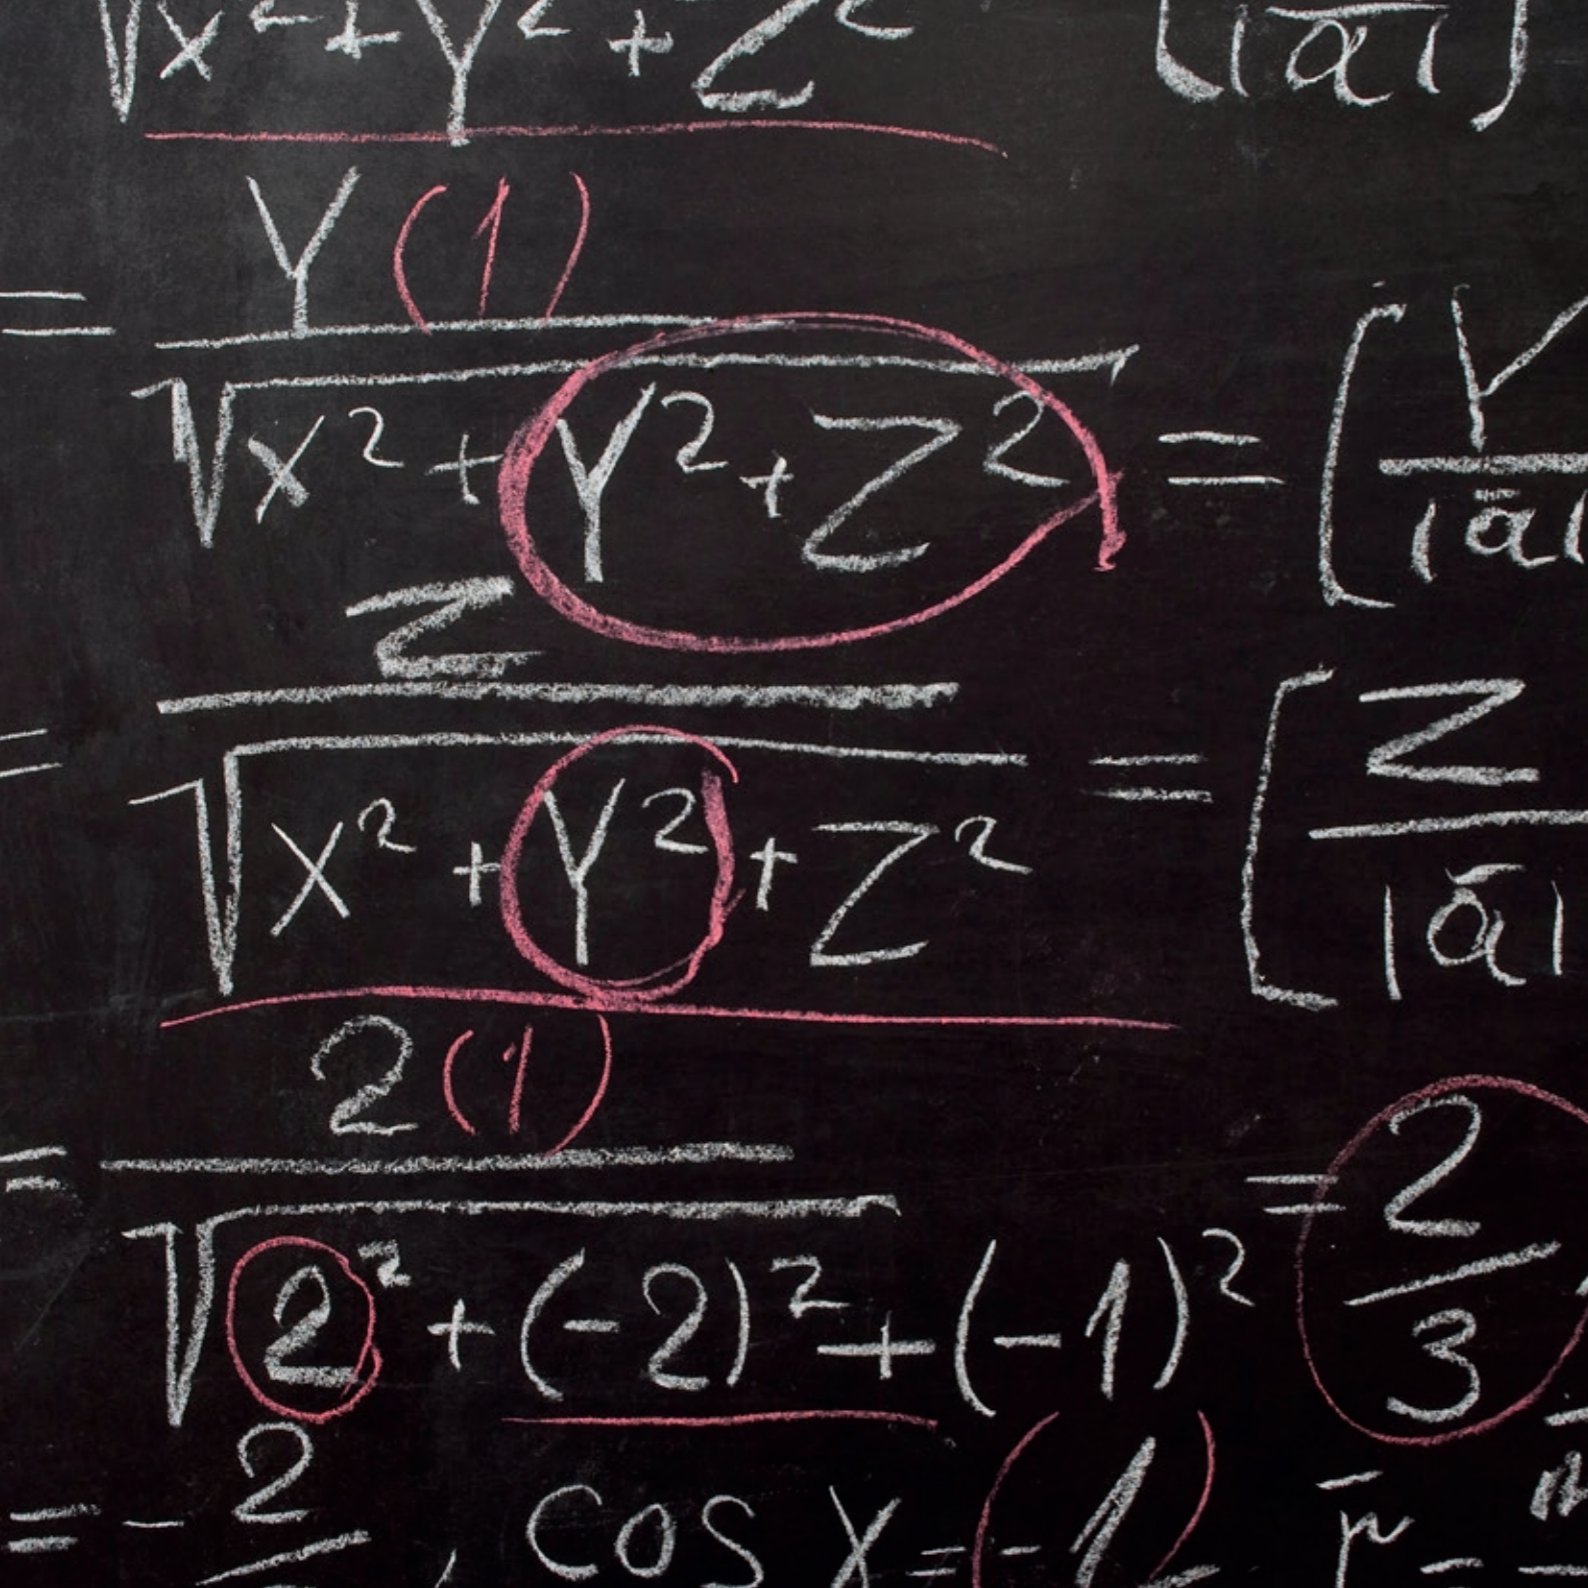 √x²+Y²+Z² [|ā|]
= Y (1) / √x²+Y²+Z² = [Y / |ā|
= Z / √x²+Y²+Z² = [Z / |ā|
= 2 (1) / √2²+(-2)²+(-1)² = 2/3
= -2/ , cos γ = (-1)